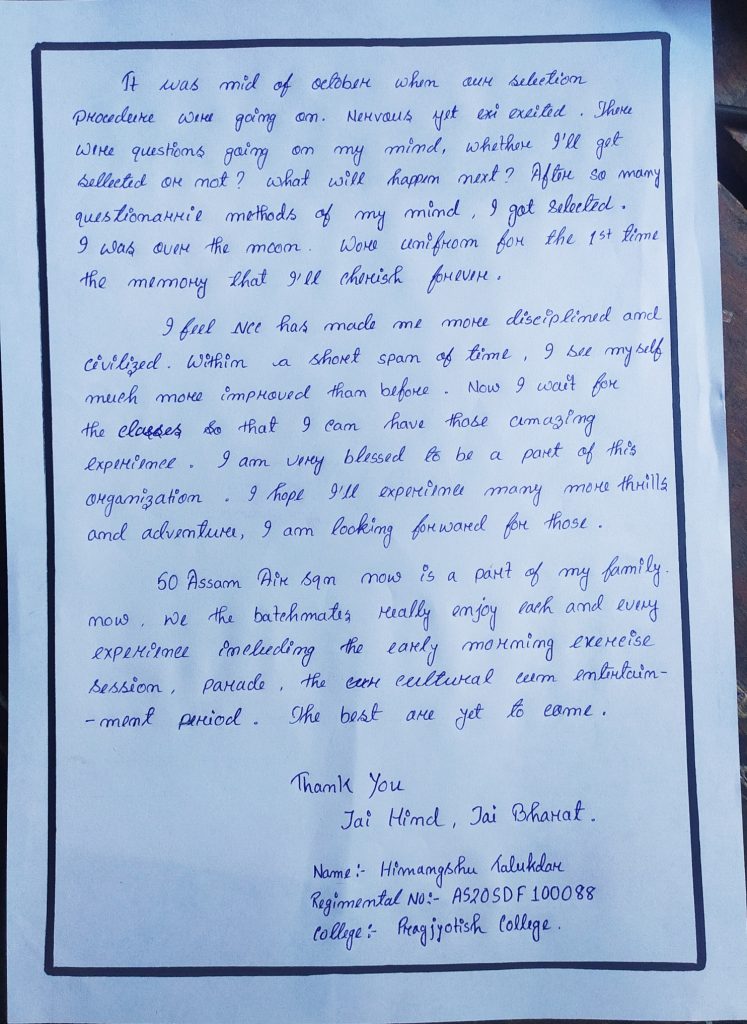 It was mid of october when our selection
procedure were going on. Nervous yet exi excited. There
were questions going on my mind, whether I'll get
sellected or not? what will happen next? After so many
questionarrie methods of my mind, I got selected.
I was over the moon. Wore unifrom for the 1st time
the memory that I'll cherish forever.
I feel NCC has made me more disciplined and
civilized. Within a short span of time, I see myself
much more improved than before. Now I wait for
the classes so that I can have those amazing
experience. I am very blessed to be a part of this
organization. I hope I'll experience many more thrills
and adventure, I am looking forward for those.
50 Assam Air sqn now is a part of my family
now. We the batchmates really enjoy each and every
experience including the early morning exercise
session, parade, the cur cultural cum entertain-
-ment period. The best are yet to come.
Thank You
Jai Hind, Jai Bharat.
Name:- Himangshu Talukdar
Regimental No:- AS20SDF100088
College:- Pragjyotish College.